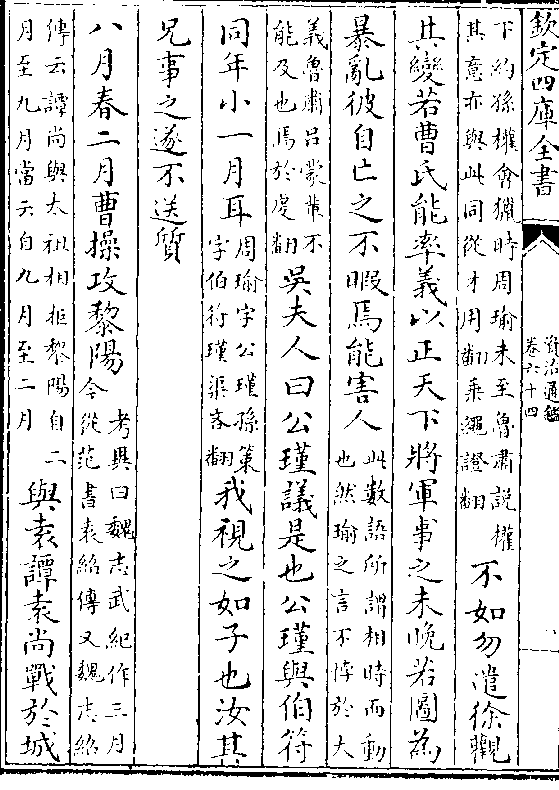 欽定四庫全書
資治通鑑
卷六十四
下約孫權會獵時周瑜未至魯肅説權
其意亦與此同從才用翻乘繩證翻
不如勿遣徐觀
其變若曹氏能率義以正天下將軍事之未晚若圖為
暴亂彼自亡之不暇焉能害人
此數語所謂相時而動
也然瑜之言不悖於大
義魯肅吕蒙軰不
能及也焉於䖍翻
吳夫人曰公瑾議是也公瑾與伯符
同年小一月耳
周瑜字公瑾孫策
字伯符瑾渠吝翻
我視之如子也汝其
兄事之遂不送質
八月春二月曹操攻黎陽
考異曰魏志武紀作三月
今從范書袁紹傳又魏志紹
傳云譚尚與太祖相拒黎陽自二
月至九月當云自九月至二月
與袁譚袁尚戰於城